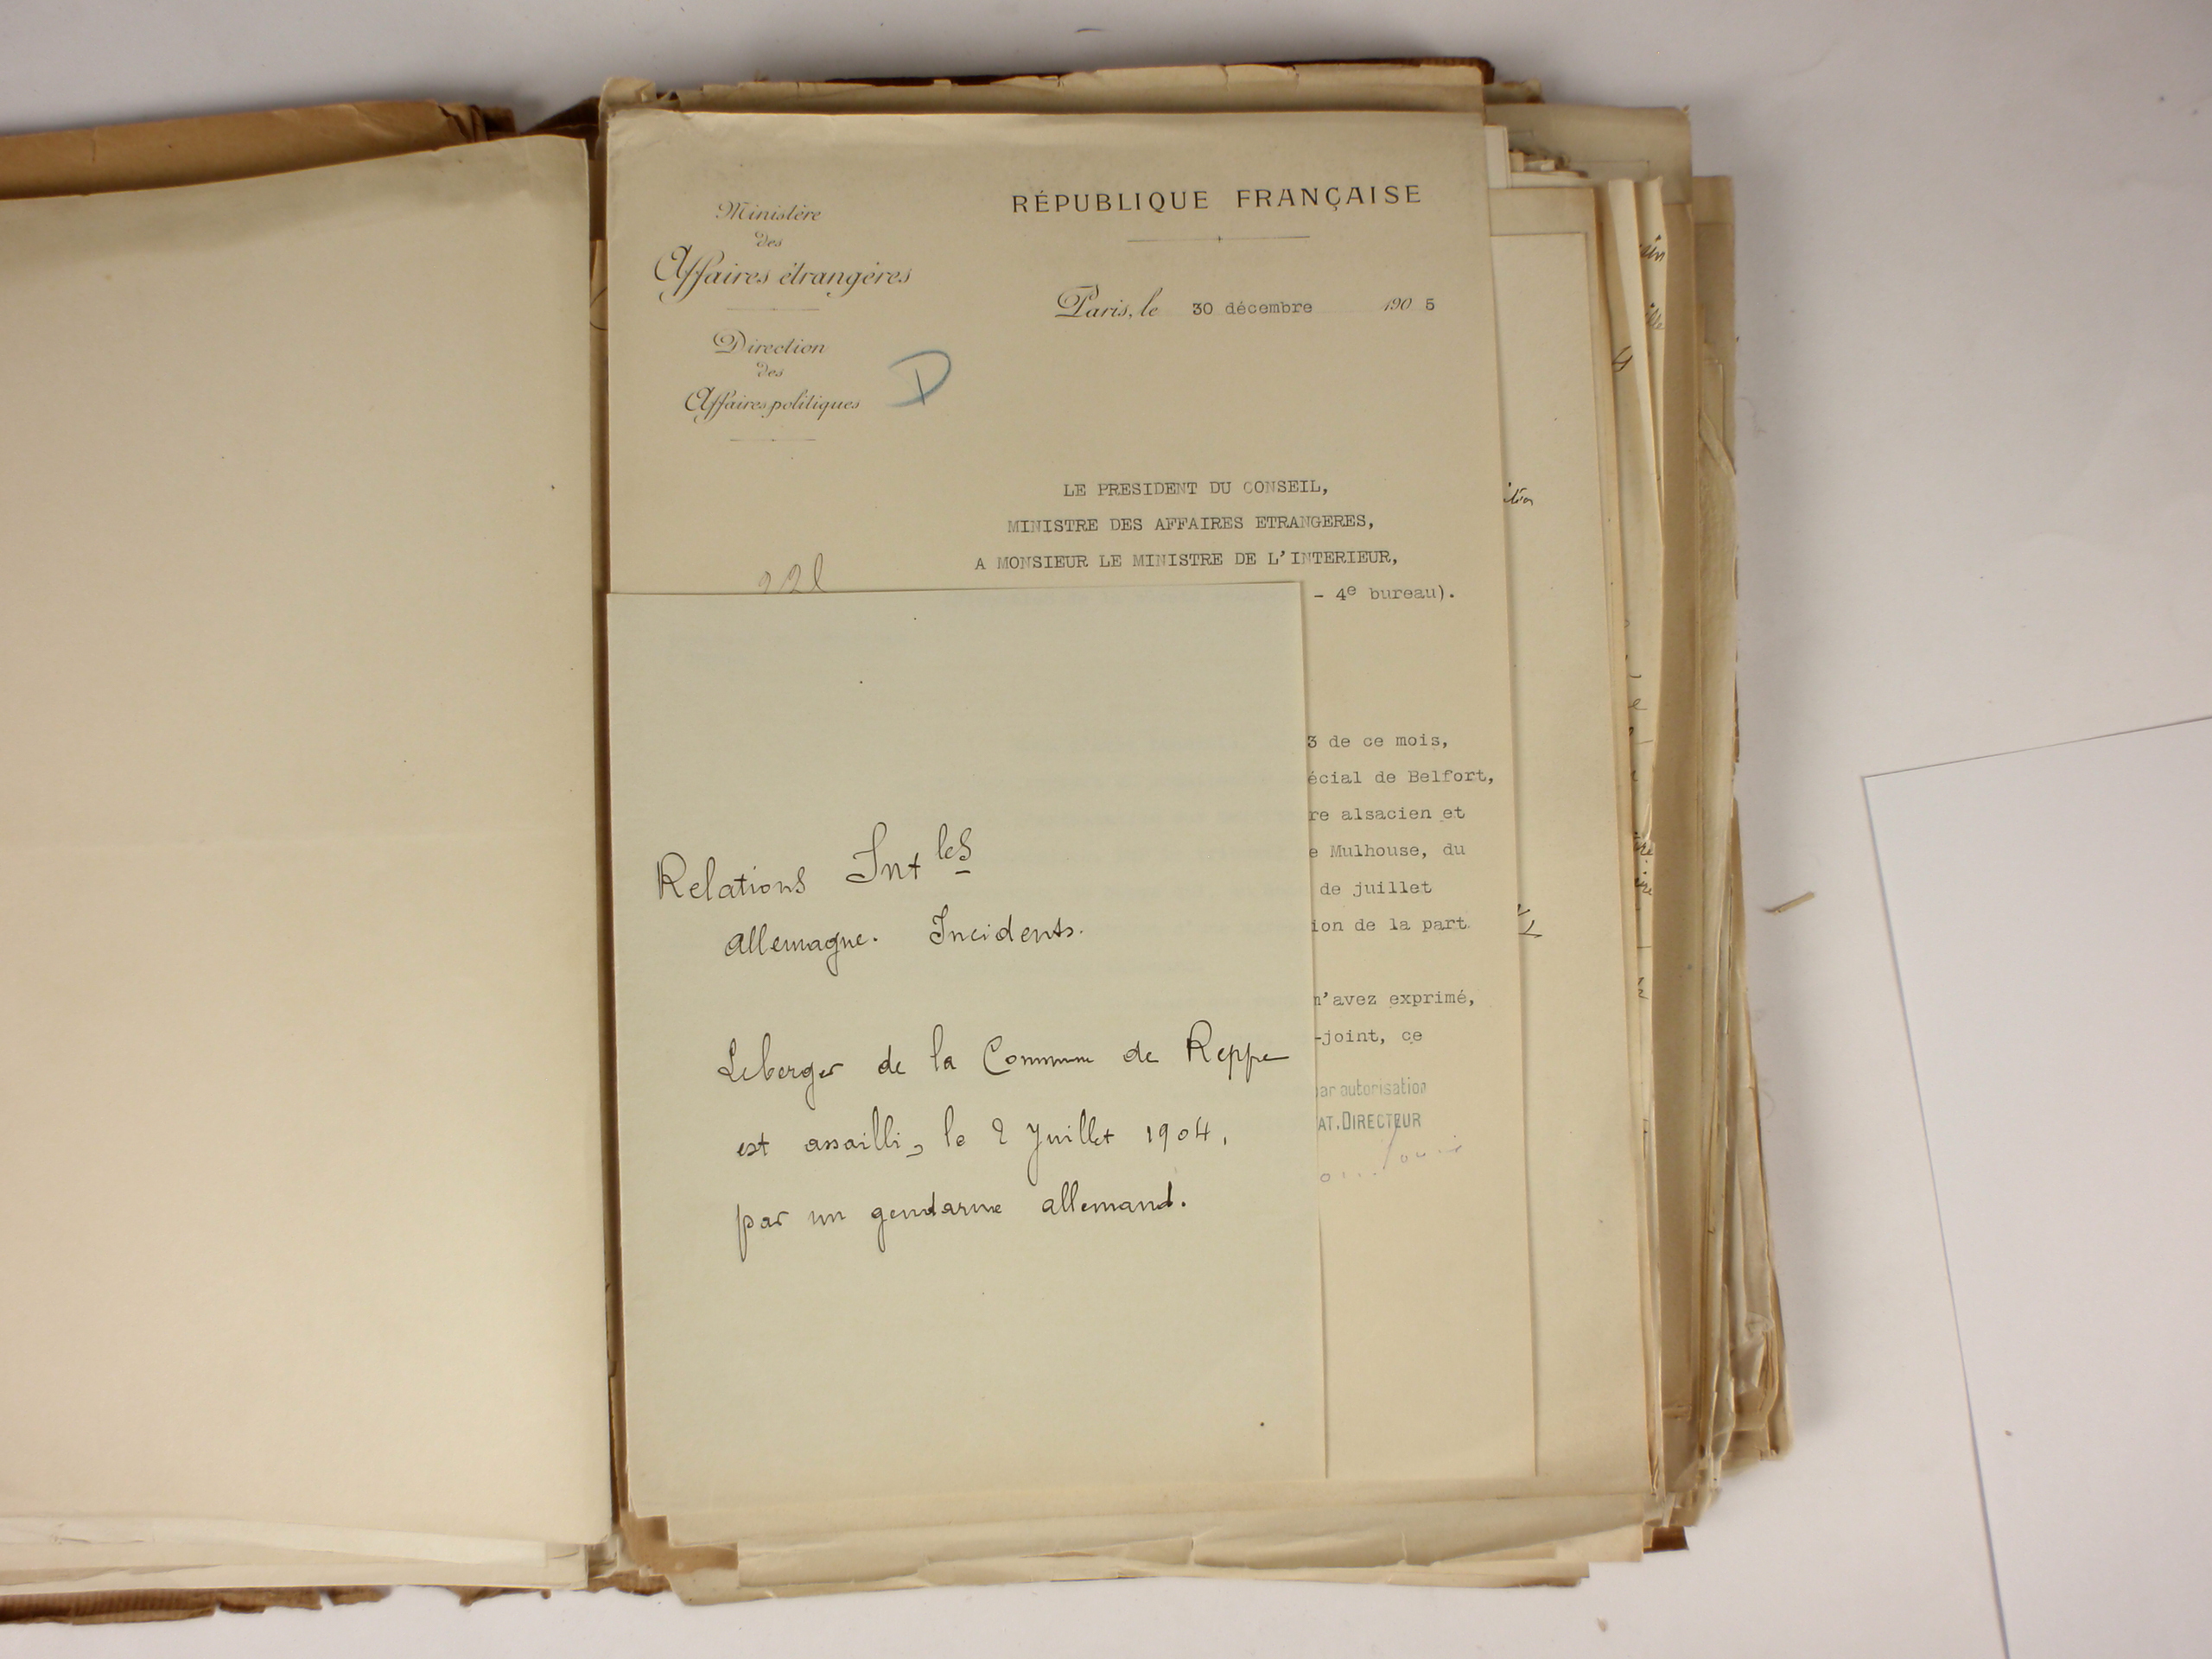 Ministère
des
Affaires étrangères
Direction
des
Affaires politiques
D
RÉPUBLIQUE FRANÇAISE
Paris, le 30 décembre 1905
LE PRESIDENT DU CONSEIL,
MINISTRE DES AFFAIRES ETRANGERES,
A MONSIEUR LE MINISTRE DE L'INTERIEUR,
- 4e bureau).
3 de ce mois,
écial de Belfort,
re alsacien et
e Mulhouse, du
de juillet
ion de la part
m'avez exprimé,
-joint, ce
par autorisation
AT.DIRECTEUR
Relations Intles
Allemagne. Incidents.
Leberger de la Commune de Reppe
est assailli, le 2 Juillet 1904,
par un gendarme allemand.